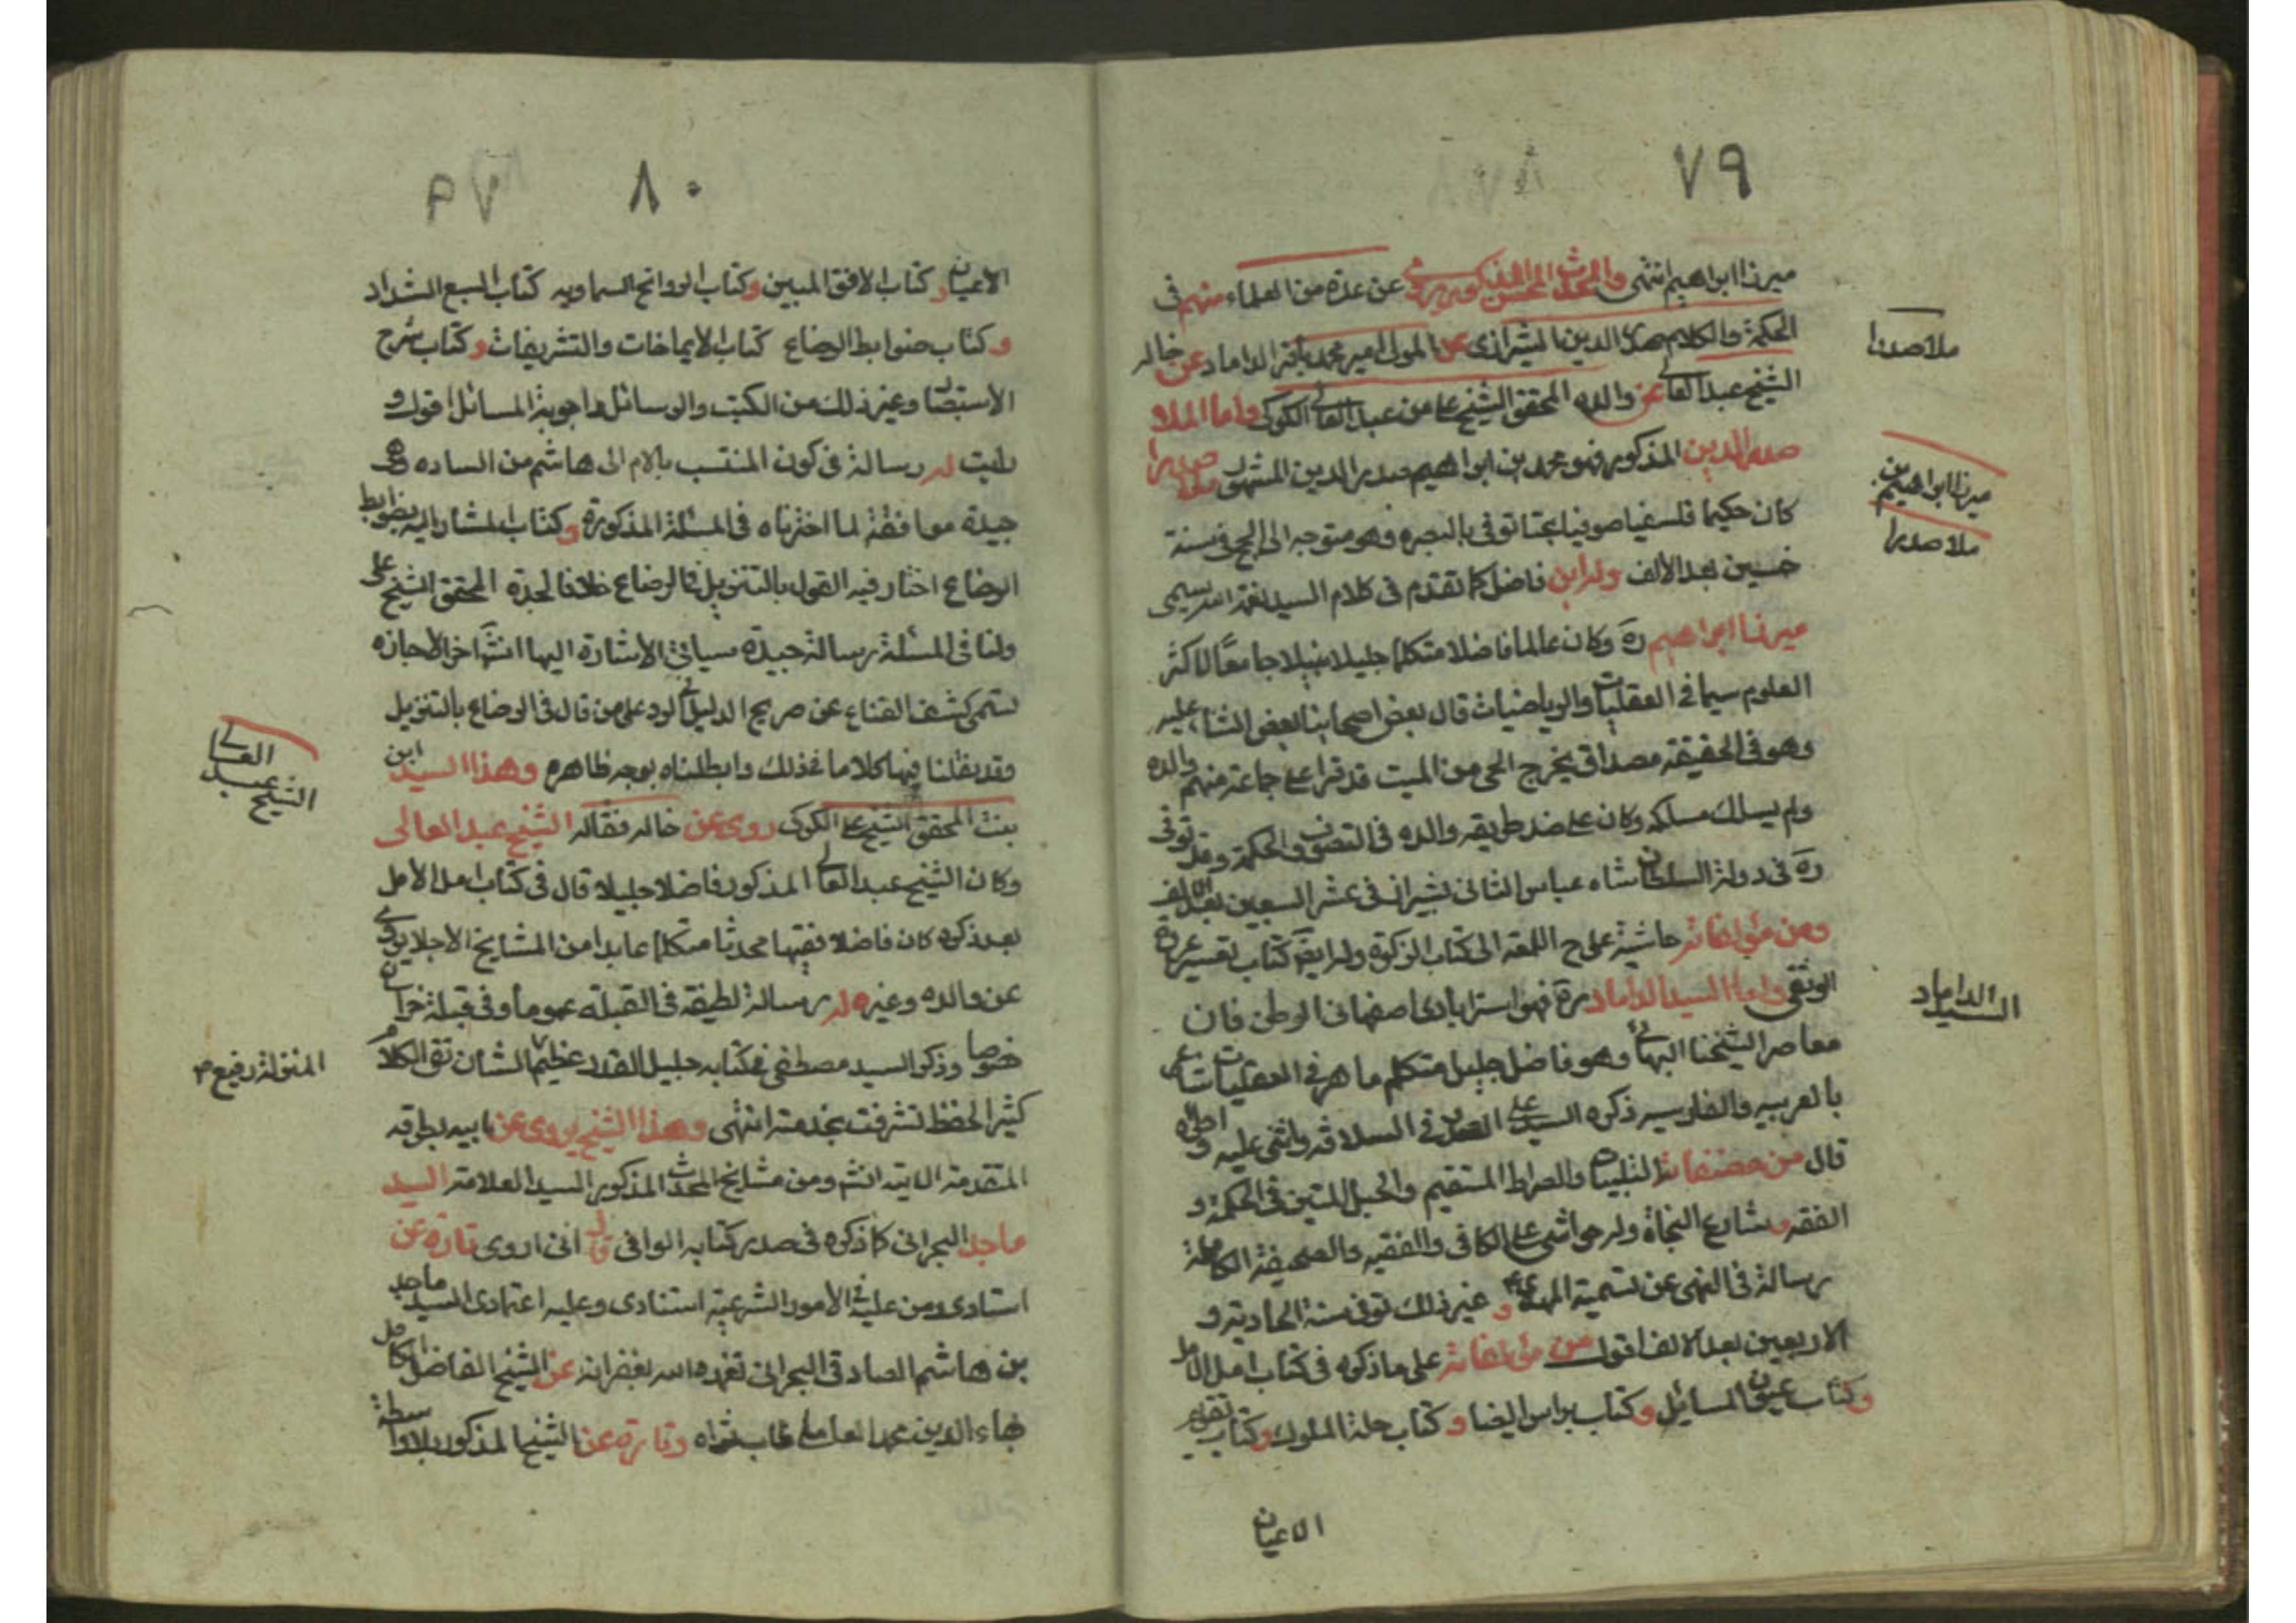 ٧٩
ميرزا ابراهيم انتهى والمحدث المحسن المذكور يروى عن عدة من العلماء منهم فى
الحكمة والكلام صدر الدين الشيرازى عن المولى امير محمد باقر الداماد عن خاله
الشيخ عبد العالى عن والده المحقق الشيخ على بن عبد العالى الكركى واما الملا
صدر الدين المذكور فهو محمد بن ابراهيم صدر الدين المشهور بملا صدرا
كان حكيما فلسفيا صوفيا بحتا توفى بالبصره وهو متوجه الى الحج فى سنة
خمسين بعد الألف وله ابن فاضل كما تقدم فى كلام السيد نعمة الله يسمى
ميرزا ابراهيم ره وكان عالما فاضلا متكلما جليلا نبيلا جامعًا لاكثر
العلوم سيما فى العقليات والرياضيات قال بعض اصحابنا بعد الثناء عليه
وهو فى الحقيقة مصداق يخرج الحى من الميت قد قرا على جماعة منهم والده
ولم يسلك مسلكه وكان على ضد طريقه والده فى التصوف والحكمة وقد توفى
ره فى دولة السلطان شاه عباس الثانى بشيراز فى عشر السبعين بعد الالف
ومن مؤلفاته حاشية على ح اللمعه الى كتاب الزكوة وله ايضً كتاب تفسير عروة
الوثقى واما السيد الداماد ره فهو استرابادى اصفهانى الوطن فان
معاصر الشيخنا البهائى وهو فاضل جليل متكلم ماهر فى العقليات شاعر
بالعربيه والفارسيه ذكره السيد على الصدر فى السلافه واثنى عليه واطراه
قال من مصنفاته القبسات والصراط المستقيم والحبل المتين فى الحكمة و
الفقه وشارع النجاة وله حواشى على الكافى والفقيه والصحيفة الكاملة
رسالة فى النهى عن تسمية المهدى ع و غير ذلك توفى سنة الحادية و
الاربعين بعد الالف اقول من مؤلفاته على ما ذكره فى كتاب امل الامل
وكتاب عيون المسائل وكتاب نبراس الضيا وكتاب خلسة الملكوت وكتاب تقويم
الاعيان
ملا صدرا
ميرزا ابراهيم بن
ملا صدرا
السيد الداماد
٨٠
الاعيان وكتاب الافق المبين وكتاب الرواشح السماويه كتاب السبع الشداد
وكتاب ضوابط الرضاع كتاب الايماضات والتشريقات وكتاب شرح
الاستبصار وغير ذلك من الكتب والرسائل واجوبة المسائل اقول و
رايت له رسالة فى كون المنتسب بالام الى هاشم من الساده وهى
جيدة موافقة لما اخترناه فى المسئلة المذكورة وكتاب المشار اليه بضوابط
الرضاع اختار فيه القول بالتنزيل فى الرضاع خلافا لجده المحقق الشيخ على
ولنا فى المسئلة رسالة جيدة سياتى الاشارة اليها انشآ اخر الاجازه
تسمى كشف القناع عن صريح الدليل فى الرد على من قال فى الرضاع بالتنزيل
وقد نقلنا فيها كلامه فى ذلك وابطلناه بوجه ظاهره وهذا السيد ابن
بنت المحقق الشيخ على الكركى روى عن خاله فقاله الشيخ عبد العالى
وكان الشيخ عبد العالى المذكور فاضلا جليلا قال فى كتاب امل الامل
بعد ذكره كان فاضلا فقيها محدثا متكلما عابدا من المشايخ الاجلا يروى
عن والده وغيره له رسالة لطيفه فى القبلة عموما وفى قبلة خراسان
خصوصا وذكر السيد مصطفى فى كتابه جليل القدر عظيم الشان نقى الكلام
كثير الحفظ تشرفت بخدمته انتهى وهذا الشيخ يروى عن ابيه بطرقه
المتقدمة الاتيه انشم ومن مشايخ المحدث المذكور السيد العلامة السيد
ماجد البحرانى كما ذكره فى صدر كتابه الوافى قال انى اروى تارة عن
استادى ومن عليه فى الامور الشرعية استنادى وعليه اعتمادى السيد ماجد
بن هاشم الصادقى البحرانى تغمده الله بغفرانه عن الشيخ الفاضل الكامل
بهاء الدين محمد العاملى طاب ثراه وتارة عن الشيخ المذكور بلا واسطة
الشيخ عبد العالى
المنزلة رفيع م